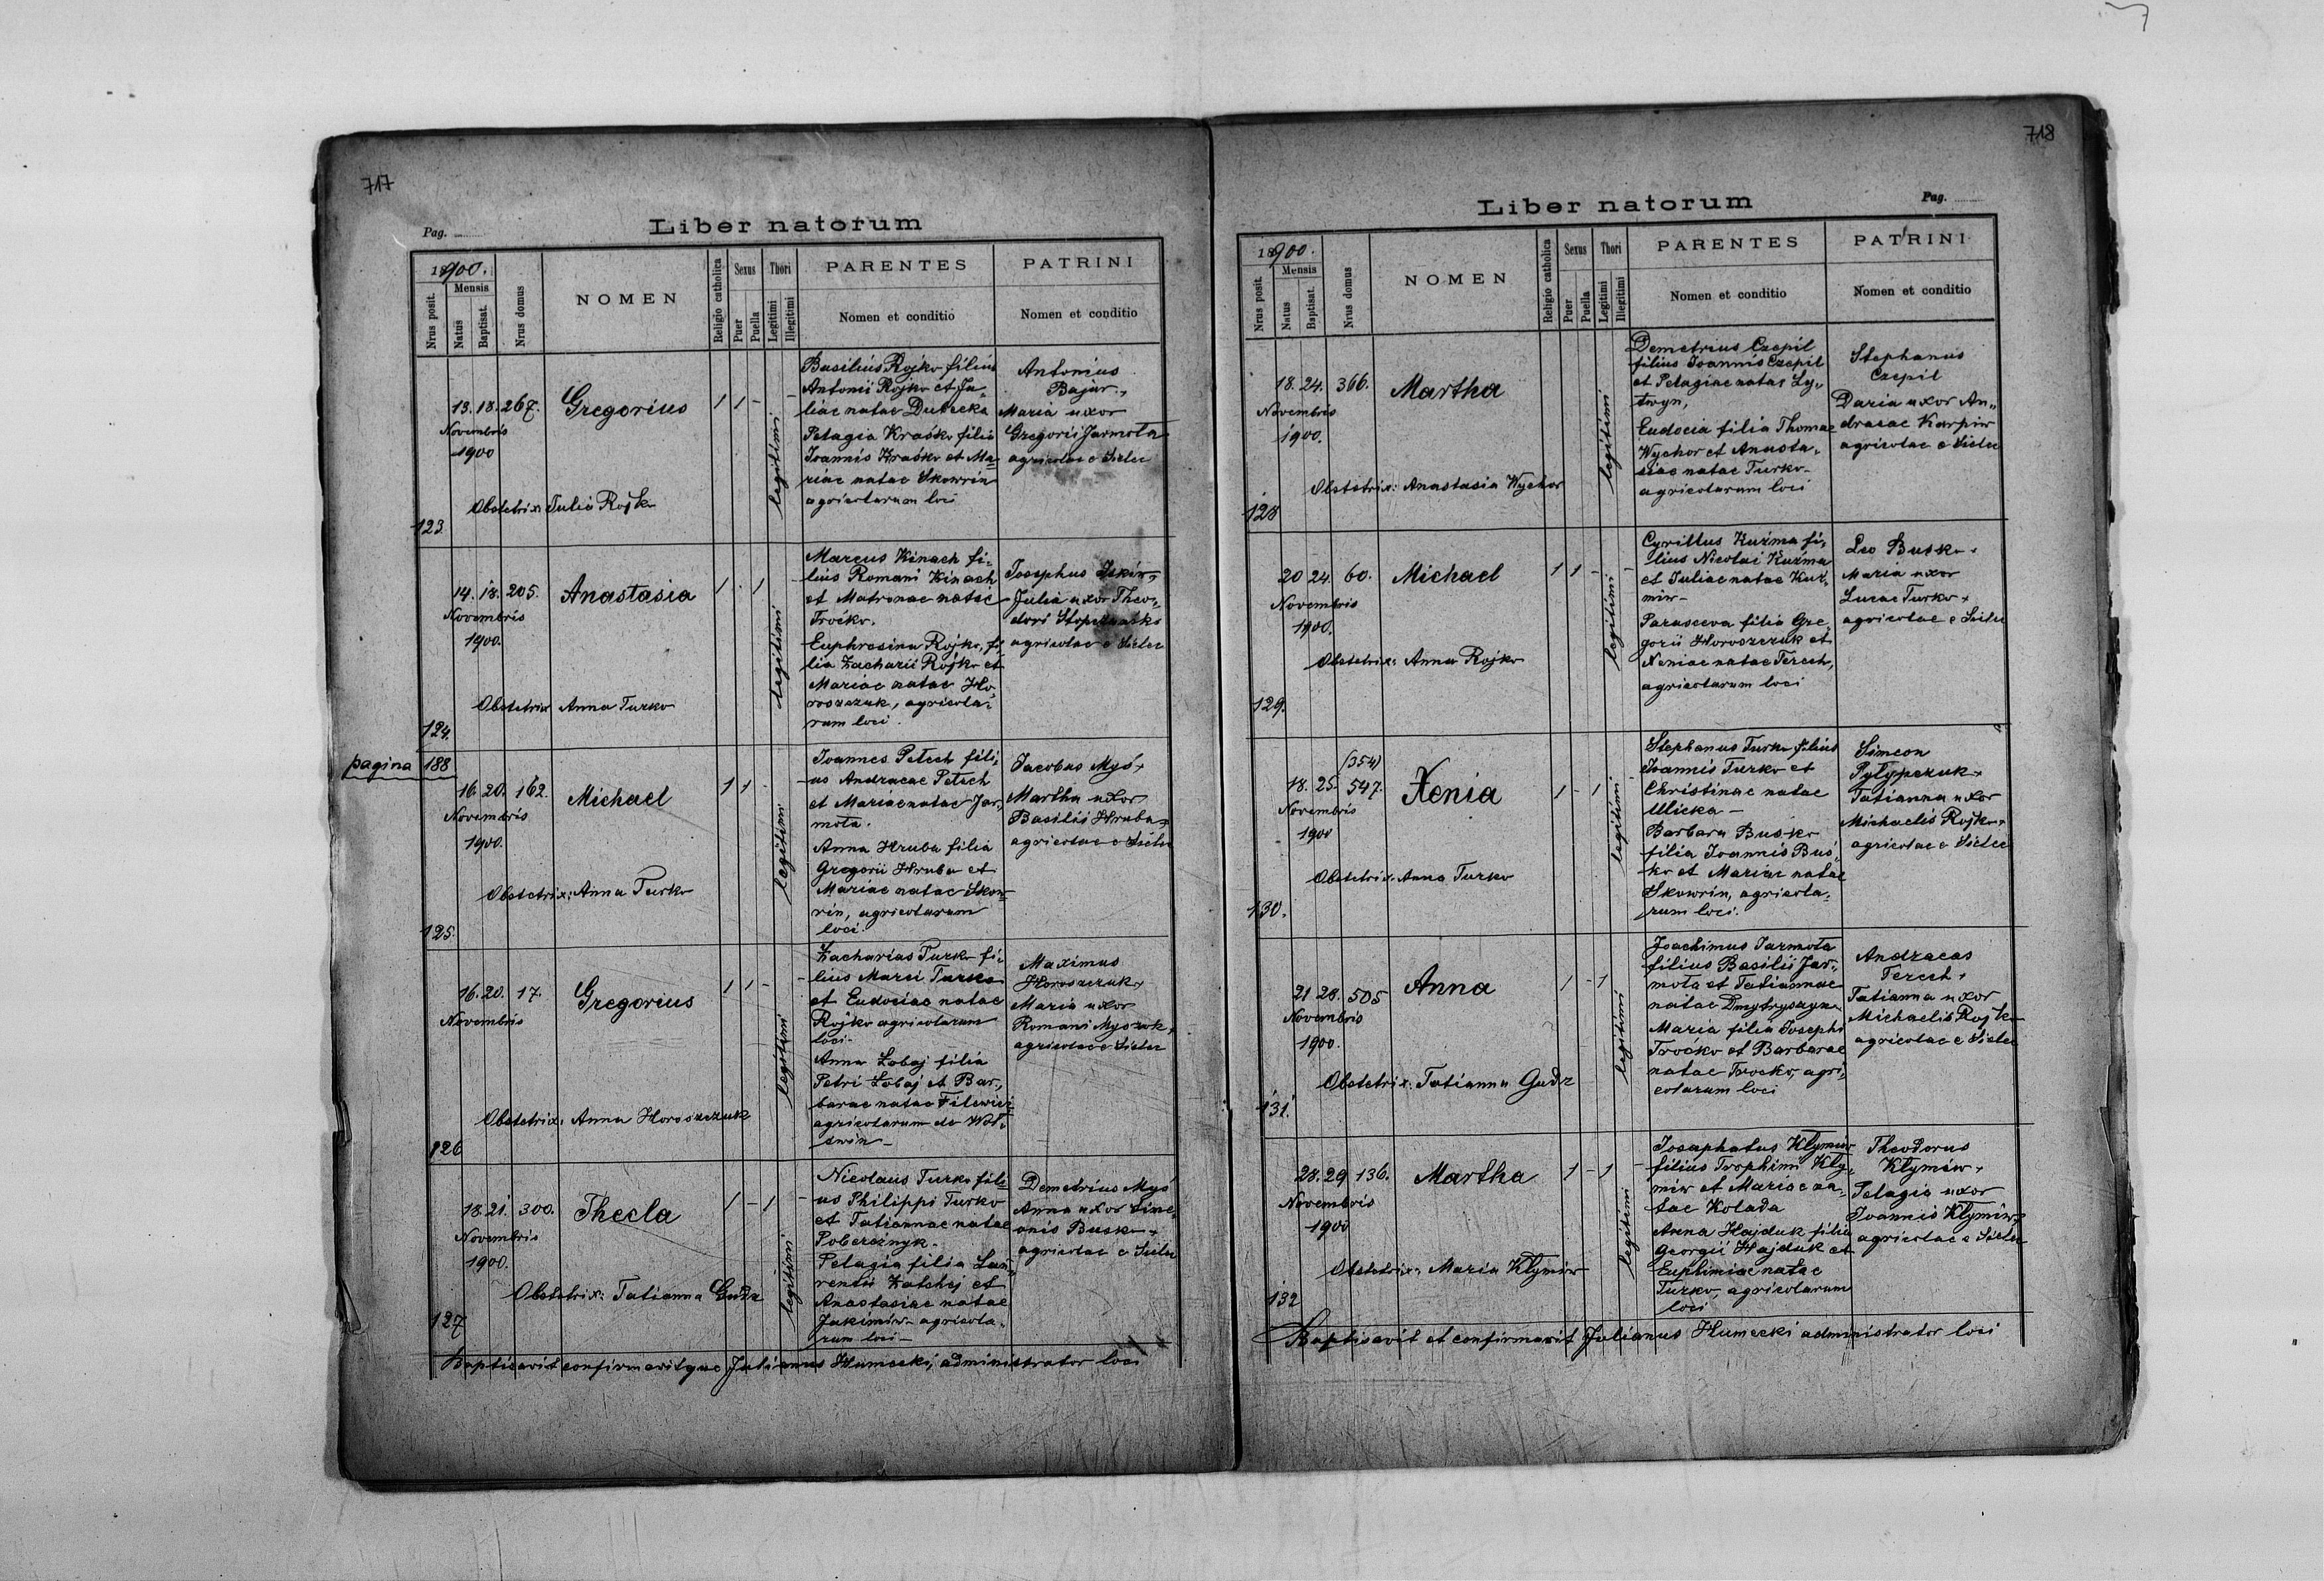 717
Pag.
Liber natorum
1900.
Nrus posit.
Mensis
Natus
Baptisat.
Nrus domus
NOMEN
Religio catholica
Sexus
Puer
Puella
Thori
Legitimi
Illegitimi
PARENTES
Nomen et conditio
PATRINI
Nomen et conditio
123
13. 18. 267.
Novembris
1900
Gregorius
1 1 -
legitimi
Obstetrix Julia Rojko
Basilius Rojko filius
Antonii Rojko et Ju-
liae natae Dutecka
Pelagia Kraśko filia
Joannis Kraśko et Ma-
riae natae Skowrin
agricolarum loci
Antonius
Bajur
Maria uxor
Gregorii Jarmota
agricolae e Sielec
124.
14. 18. 205.
Novembris
1900.
Anastasia
1 . 1
legitimi
Obstetrix Anna Turko
Marcus Kinach fi-
lius Romani Kinach
et Matronae natae
Troćko.
Euphrosina Rojko, fi-
lia Zacharii Rojko et
Mariae natae Ho-
roszczuk, agricola-
rum loci.
Josephus
Julia uxor Theo-
dori
agricolae e Sielec
pagina 188
125.
16. 20. 162.
Novembris
1900.
Michael
1 1 -
legitimi
Obstetrix: Anna Turko
Joannes Petech fili-
us Andraeae Petech
et Mariae natae Jar-
mota.
Anna Hruba filia
Gregorii Hruba et
Mariae natae Skow-
rin, agricolarum
loci.
Jacobus Myś
Martha uxor
Basilii Hruba
agricolae e Sielec
126
16. 20. 17.
Novembris
Gregorius
1 1 -
legitimi
Obstetrix: Anna Horoszczuk
Zacharias Turko fi-
lius Marci Turko
et Eudociae natae
Rojko agricolarum
loci.
Anna Łobaj filia
Petri Łobaj et Bar-
barae natae Filewicz
agricolarum de Wol-
swin
Maximus
Horoszczuk
Maria uxor
Romani Myszok
agricolae e Sielec
127
18. 21. 300.
Novembris
1900.
Thecla
1 - 1 -
legitimi
Obstetrix: Tatianna Gudz
Nicolaus Turko fili-
us Philippi Turko
et Tatiannae natae
Pobereżnyk.
Pelagia filia Lau-
rentii Zatchej et
Anastasiae natae
Jakimiw agricola-
rum loci
Demetrius Myś
Anna uxor Sime-
onis Busko
agricolae e Sielec
Baptisavit confirmavitque Julianus Humecki, administrator loci
718
Liber natorum
Pag.
1900.
Nrus posit.
Mensis
Natus
Baptisat.
Nrus domus
NOMEN
Religio catholica
Sexus
Puer
Puella
Thori
Legitimi
Illegitimi
PARENTES
Nomen et conditio
PATRINI
Nomen et conditio
128
18. 24. 366.
Novembris
1900.
Martha
legitimi
Obstetrix: Anastasia Wychor
Demetrius Czepil
filius Joannis Czepil
et Pelagiae natae Ly-
twyn,
Eudocia filia Thomae
Wychor et Anasta-
siae natae Turko
agricolarum loci
Stephanus
Czepil
Daria uxor An-
draeae Karpiw
agricolae e Sielec
129.
20 24. 60.
Novembris
1900.
Michael
1 1 - -
legitimi
Obstetrix: Anna Rojko
Cyrillus Kuźma fi-
lius Nicolai Kuźma
et Juliae natae Kuź-
miw
Parasceva filia Gre-
gorii Horoszczuk et
Xeniae natae Terech,
agricolarum loci
Leo Busko
Maria uxor
Lucae Turko
agricolae e Sielec
130.
(354)
18. 25. 547.
Novembris
1900
Xenia
1 - 1 -
legitimi
Obstetrix: Anna Turko
Stephanus Turko filius
Joannis Turko et
Christinae natae
Ulicka
Barbara Busko
filia Joannis Buś-
ko et Mariae natae
Skowrin, agricola-
rum loci.
Simeon
Pylypczuk
Tatianna uxor
Michaelis Rojko
agricolae e Sielec
131.
21 28. 505
Novembris
1900.
Anna
1 - 1
legitimi
Obstetrix: Tatianna Gudz
Joachimus Jarmota
filius Basilii Jar-
mota et Tatiannae
natae Dmytryszyn
Maria filia Josephi
Troćko et Barbarae
natae Troćko, agri-
colarum loci
Andraeas
Terech
Tatianna uxor
Michaelis Rojko
agricolae e Sielec
132
28. 29 136.
Novembris
1900
Martha
1 - 1 -
legitimi
Obstetrix: Maria Klymiw
Josaphatus Klymiw
filius Trophimi Kly-
miw et Mariae na-
tae Kolada
Anna Hajduk filia
Georgii Hajduk et
Euphimiae natae
Turko, agricolarum
loci
Theodorus
Klymiw
Pelagia uxor
Joannis Klymiw
agricolae e Sielec
Baptisavit et confirmavit Julianus Humecki administrator loci